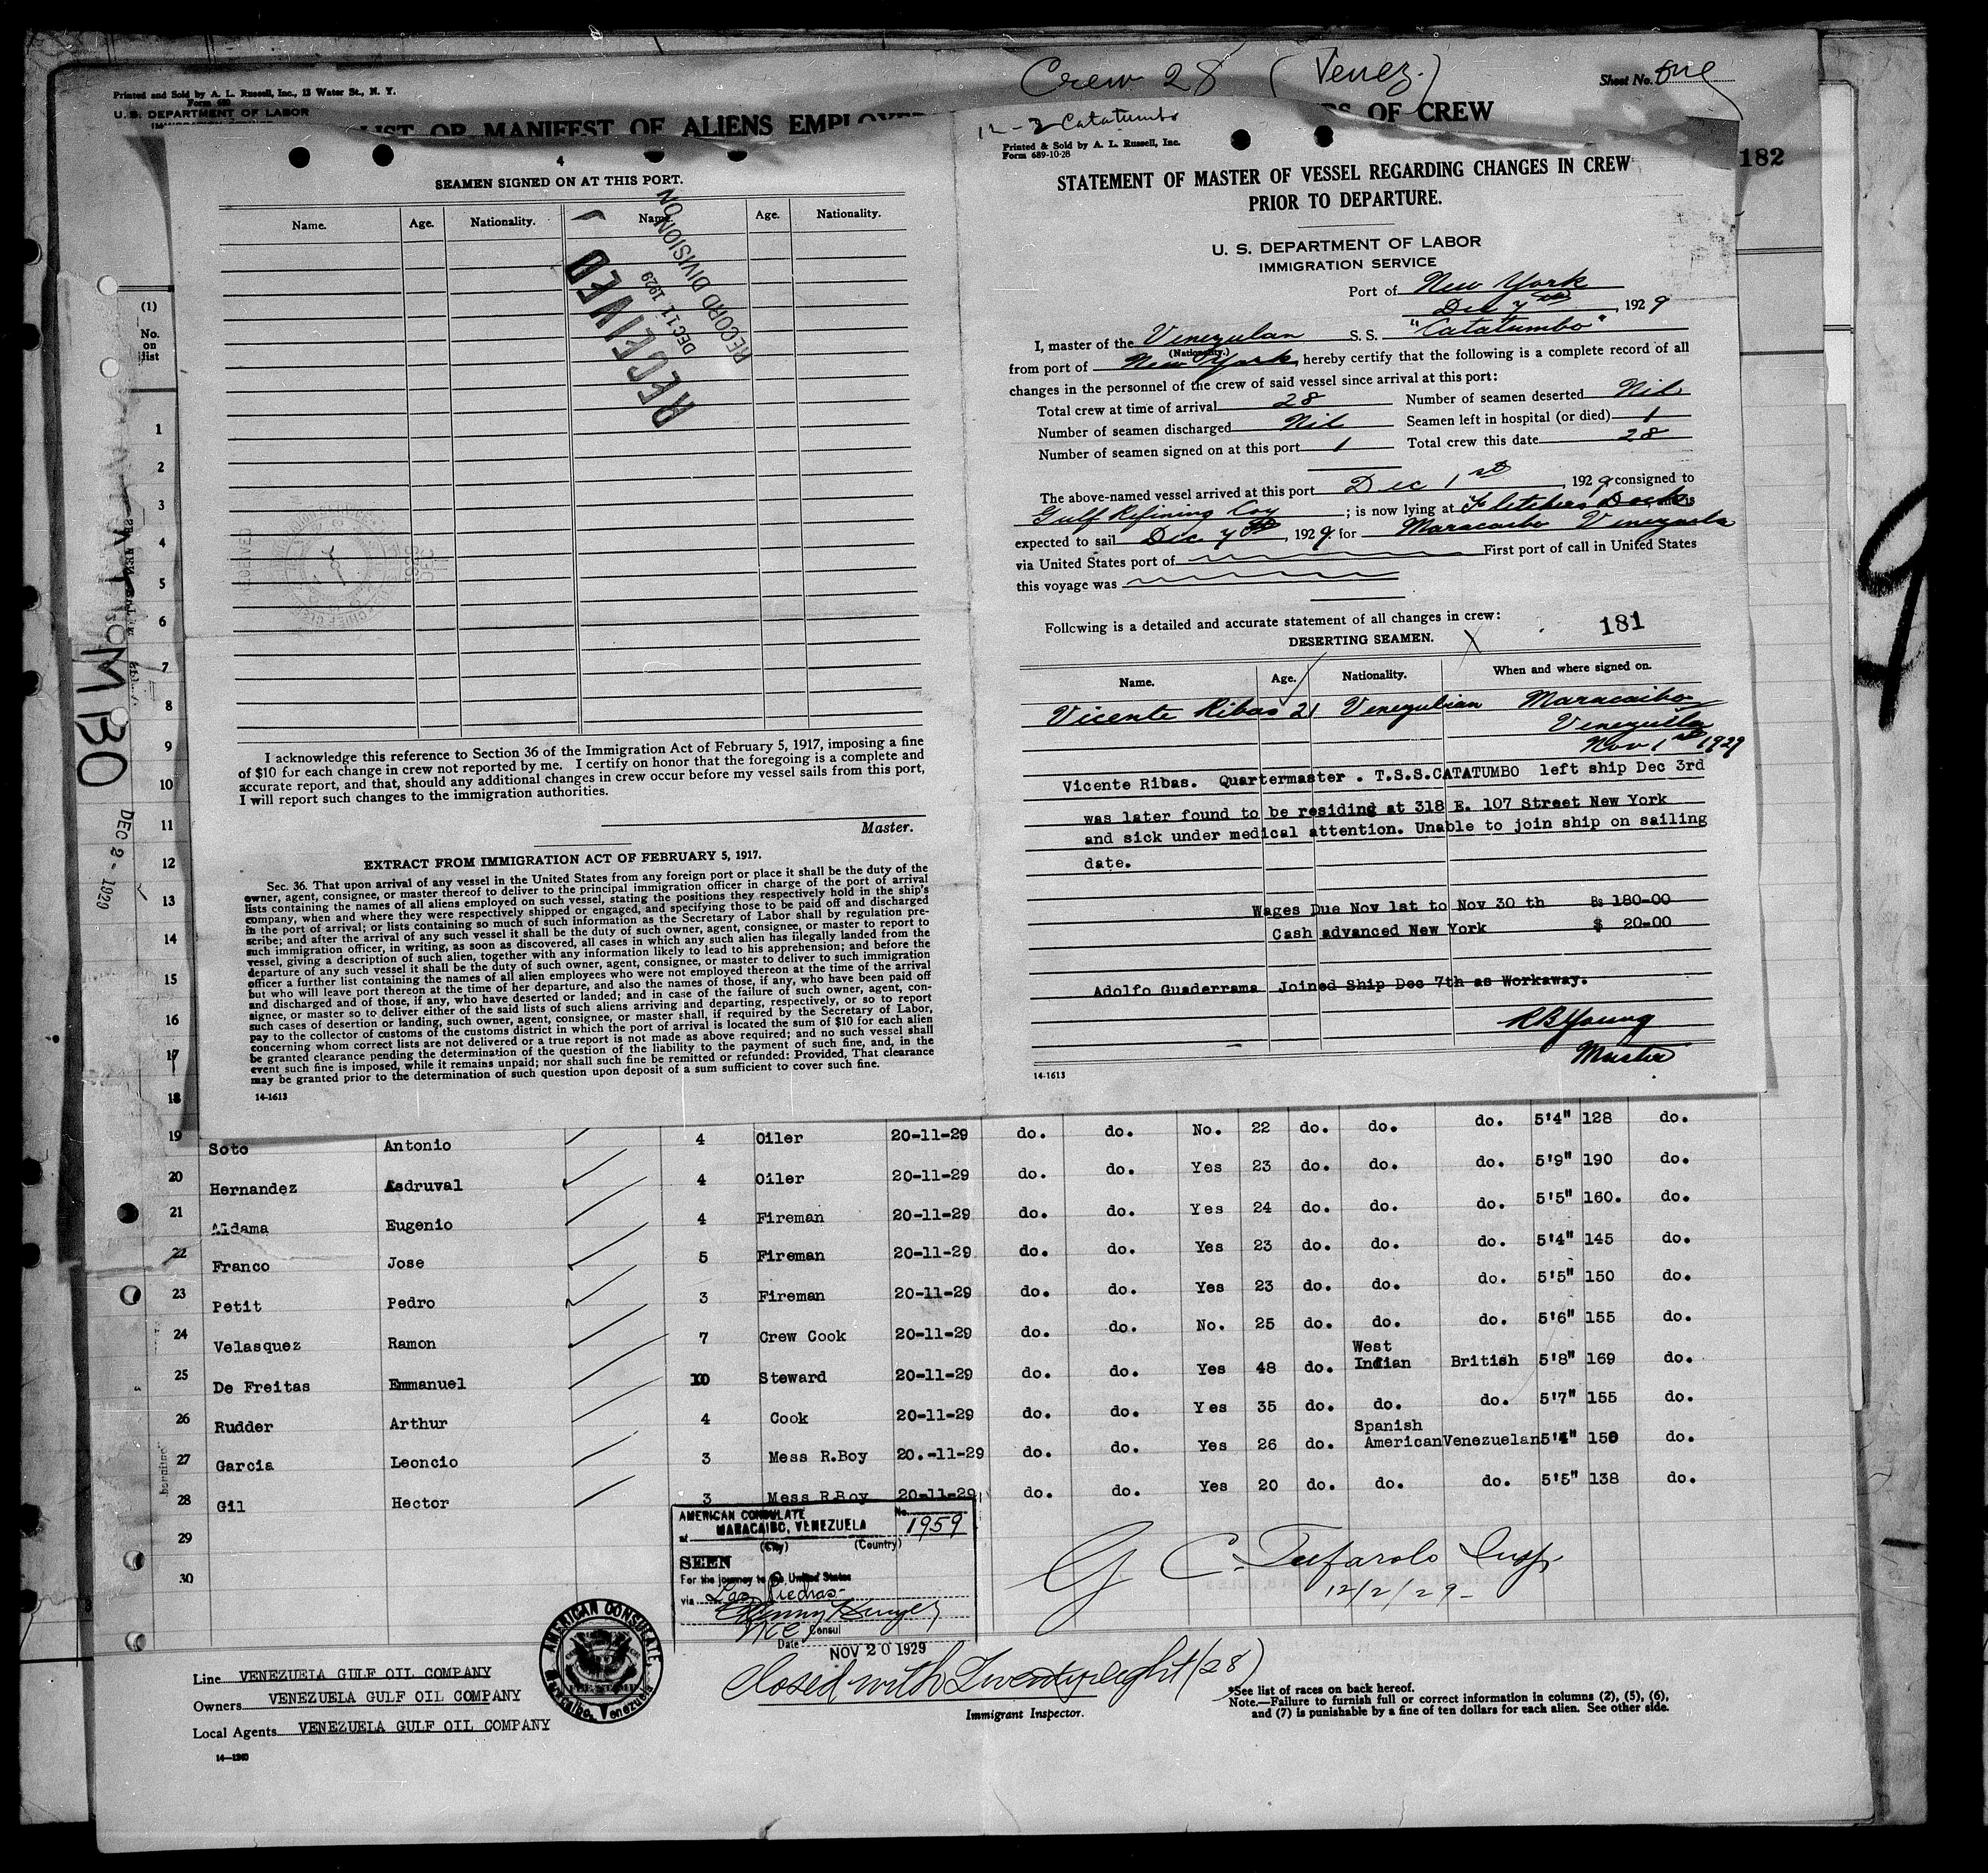 Crew 28 (Venez.)
Sheet No. One
Printed and Sold by A. L. Russell, Inc., 13 Water St., N. Y.
Form 689
U. S. DEPARTMENT OF LABOR
LIST OR MANIFEST OF ALIENS EMPLOYED
OF CREW
182
4
SEAMEN SIGNED ON AT THIS PORT.
Name. Age. Nationality. Name. Age. Nationality.
RECEIVED
DEC 11 1929
RECORD DIVISION
I acknowledge this reference to Section 36 of the Immigration Act of February 5, 1917, imposing a fine
of $10 for each change in crew not reported by me. I certify on honor that the foregoing is a complete and
accurate report, and that, should any additional changes in crew occur before my vessel sails from this port,
I will report such changes to the immigration authorities.
Master.
EXTRACT FROM IMMIGRATION ACT OF FEBRUARY 5, 1917.
Sec. 36. That upon arrival of any vessel in the United States from any foreign port or place it shall be the duty of the
owner, agent, consignee, or master thereof to deliver to the principal immigration officer in charge of the port of arrival
lists containing the names of all aliens employed on such vessel, stating the positions they respectively hold in the ship's
company, when and where they were respectively shipped or engaged, and specifying those to be paid off and discharged
in the port of arrival; or lists containing so much of such information as the Secretary of Labor shall by regulation pre-
scribe; and after the arrival of any such vessel it shall be the duty of such owner, agent, consignee, or master to report to
such immigration officer, in writing, as soon as discovered, all cases in which any such alien has illegally landed from the
vessel, giving a description of such alien, together with any information likely to lead to his apprehension; and before the
departure of any such vessel it shall be the duty of such owner, agent, consignee, or master to deliver to such immigration
officer a further list containing the names of all alien employees who were not employed thereon at the time of the arrival
but who will leave port thereon at the time of her departure, and also the names of those, if any, who have been paid off
and discharged and of those, if any, who have deserted or landed; and in case of the failure of such owner, agent, con-
signee, or master so to deliver either of the said lists of such aliens arriving and departing, respectively, or so to report
such cases of desertion or landing, such owner, agent, consignee, or master shall, if required by the Secretary of Labor,
pay to the collector of customs of the customs district in which the port of arrival is located the sum of $10 for each alien
concerning whom correct lists are not delivered or a true report is not made as above required; and no such vessel shall
be granted clearance pending the determination of the question of the liability to the payment of such fine, and, in the
event such fine is imposed, while it remains unpaid; nor shall such fine be remitted or refunded: Provided, That clearance
may be granted prior to the determination of such question upon deposit of a sum sufficient to cover such fine.
14-1613
12-2 Catatumbo
Printed & Sold by A. L. Russell, Inc.
Form 689-10-28
STATEMENT OF MASTER OF VESSEL REGARDING CHANGES IN CREW
PRIOR TO DEPARTURE.
U. S. DEPARTMENT OF LABOR
IMMIGRATION SERVICE
Port of New York
Dec 7th, 1929
I, master of the Venezulan S. S. "Catatumbo"
(Nationality.)
from port of New York, hereby certify that the following is a complete record of all
changes in the personnel of the crew of said vessel since arrival at this port:
Total crew at time of arrival 28 Number of seamen deserted Nil
Number of seamen discharged Nil Seamen left in hospital (or died) 1
Number of seamen signed on at this port 1 Total crew this date 28
The above-named vessel arrived at this port Dec 1st, 1929 consigned to
Gulf Refining Coy; is now lying at Fletchers Dock, and is
expected to sail Dec 7th, 1929 for Maracaibo Venezuela
via United States port of First port of call in United States
this voyage was
Following is a detailed and accurate statement of all changes in crew:
DESERTING SEAMEN.
181
Name. Age. Nationality. When and where signed on.
Vicente Ribas 21 Venezulian Maracaibo
Venezuela
Nov 1st 1929
Vicente Ribas. Quartermaster . T.S.S.CATATUMBO left ship Dec 3rd
was later found to be residing at 318 E. 107 Street New York
and sick under medical attention. Unable to join ship on sailing
date.
Wages Due Nov 1st to Nov 30 th Bs 180-00
Cash advanced New York $ 20-00
Adolfo Guaderrama Joined Ship Dec 7th as Workaway.
R B Young
Master
14-1613
(1)
No.
on
list
1
2
3
4
5
6
7
8
9
10
11
12
13
14
15
16
17
18
DEC 2 - 1929
19 Soto Antonio 4 Oiler 20-11-29 do. do. No. 22 do. do. do. 5'4" 128 do.
20 Hernandez Asdruval 4 Oiler 20-11-29 do. do. Yes 23 do. do. do. 5'9" 190 do.
21 Aldama Eugenio 4 Fireman 20-11-29 do. do. Yes 24 do. do. do. 5'5" 160. do.
22 Franco Jose 5 Fireman 20-11-29 do. do. Yes 23 do. do. do. 5'4" 145 do.
23 Petit Pedro 3 Fireman 20-11-29 do. do. Yes 23 do. do. do. 5'5" 150 do.
24 Velasquez Ramon 7 Crew Cook 20-11-29 do. do. No. 25 do. do. do. 5'6" 155 do.
25 De Freitas Emmanuel 10 Steward 20-11-29 do. do. Yes 48 do. West Indian British 5'8" 169 do.
26 Rudder Arthur 4 Cook 20-11-29 do. do. Yes 35 do. do. do. 5'7" 155 do.
27 Garcia Leoncio 3 Mess R.Boy 20.-11-29 do. do. Yes 26 do. Spanish American Venezuelan 5'4" 150 do.
28 Gil Hector 3 Mess R.Boy 20-11-29 do. do. Yes 20 do. do. do. 5'5" 138 do.
29
30
AMERICAN CONSULATE No. 1959
at MARACAIBO, VENEZUELA
(City) (Country)
SEEN
For the journey to the United States
via Las Piedras
Vice Consul
Date NOV 20 1929
AMERICAN CONSULATE,
Maracaibo, Venezuela
G. C. Tufarolo Insp.
12/2/29
Closed with Twenty eight (28)
Immigrant Inspector.
Line VENEZUELA GULF OIL COMPANY
Owners VENEZUELA GULF OIL COMPANY
Local Agents VENEZUELA GULF OIL COMPANY
14-1240
*See list of races on back hereof.
Note.—Failure to furnish full or correct information in columns (2), (5), (6),
and (7) is punishable by a fine of ten dollars for each alien. See other side.